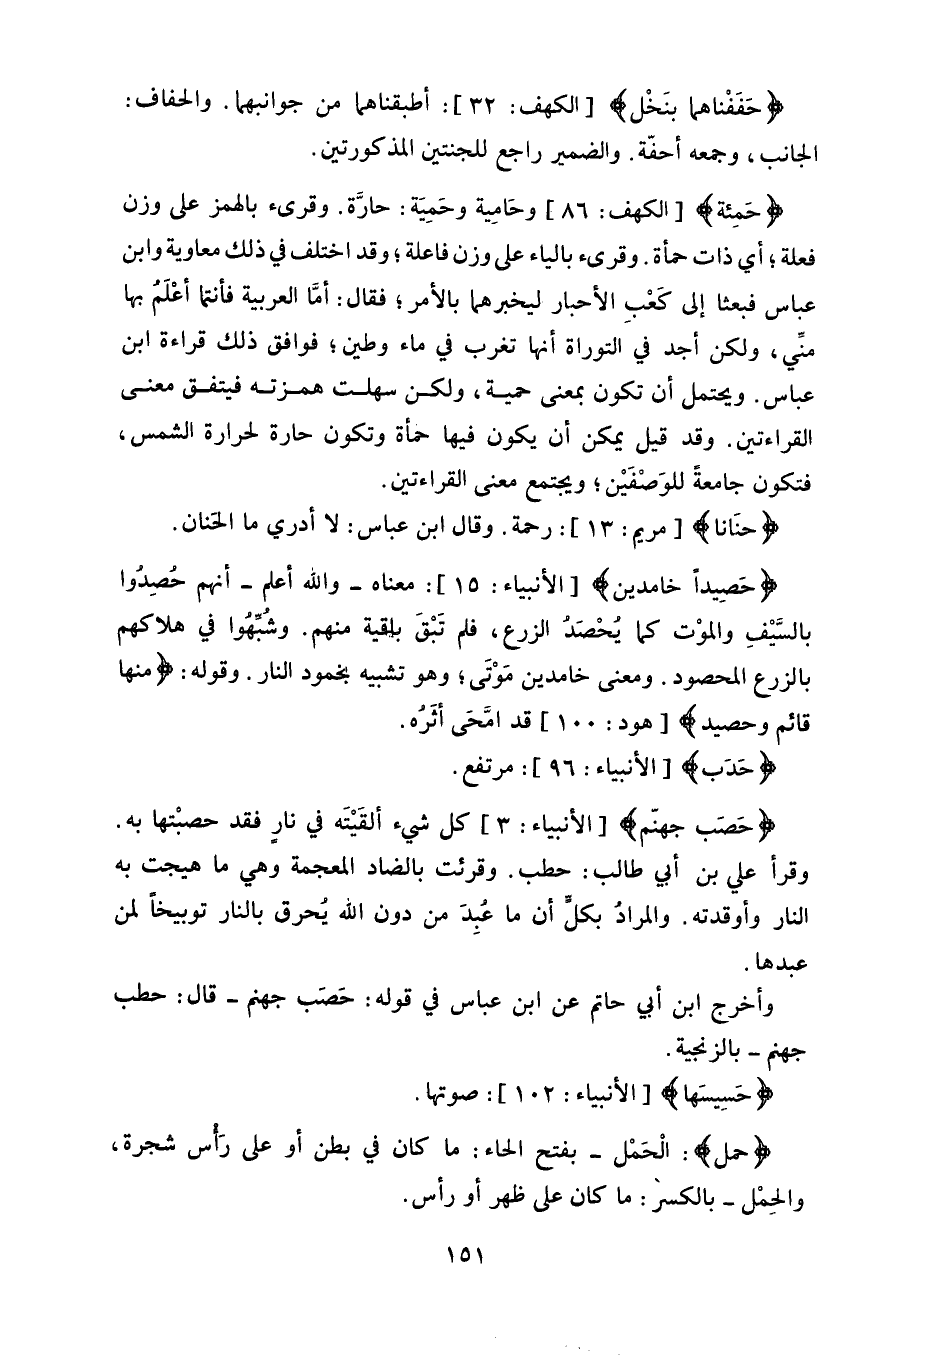 ﴿حَفَفْناهما بنَخْل﴾ [الكهف: ٣٢]: أطبقناهما من جوانبهما. والحفاف:
الجانب، وجمعه أحفّة. والضمير راجع للجنتين المذكورتين.
﴿حَمِئة﴾ [الكهف: ٨٦] وحَامِية وحَمِيَة: حارَّة. وقرىء بالهمز على وزن
فعلة؛ أي ذات حمأة. وقرىء بالياء على وزن فاعلة؛ وقد اختلف في ذلك معاوية وابن
عباس فبعثا إلى كَعْبِ الأحبار ليخبرهما بالأمر؛ فقال: أمَّا العربية فأنتما أعْلَمُ بها
منِّي، ولكن أجد في التوراة أنها تغرب في ماء وطين؛ فوافق ذلك قراءة ابن
عباس. ويحتمل أن تكون بمعنى حمية، ولكن سهلت همزته فيتفق معنى
القراءتين. وقد قيل يمكن أن يكون فيها حمأة وتكون حارة لحرارة الشمس،
فتكون جامعةً للوَصْفَيْن؛ ويجتمع معنى القراءتين.
﴿حنَانا﴾ [مريم: ١٣]: رحمة. وقال ابن عباس: لا أدري ما الحَنان.
﴿حَصِيداً خامدين﴾ [الأنبياء: ١٥]: معناه ـ والله أعلم ـ أنهم حُصِدُوا
بالسَّيْفِ والموْت كما يُحْصَدُ الزرع، فلم تَبْقَ بلقية منهم. وشُبِّهُوا في هلاكهم
بالزرع المحصود. ومعنى خامدين مَوْتَى؛ وهو تشبيه بخمود النار. وقوله: ﴿منها
قائم وحصيد﴾ [هود: ١٠٠] قد امَّحَى أثَرُه.
﴿حَدَب﴾ [الأنبياء: ٩٦]: مرتفع.
﴿حَصَب جهنّم﴾ [الأنبياء: ٣] كل شيء ألقَيْتَه في نارٍ فقد حصبْتها به.
وقرأ علي بن أبي طالب: حطب. وقرئت بالضاد المعجمة وهي ما هيجت به
النار وأوقدته. والمرادُ بكلٍّ أن ما عُبِدَ من دون الله يُحرق بالنار توبيخاً لمن
عبدها.
وأخرج ابن أبي حاتم عن ابن عباس في قوله: حَصَب جهنم ـ قال: حطب
جهنم ـ بالزنجية.
﴿حَسِيسَها﴾ [الأنبياء: ١٠٢]: صوتها.
﴿حمل﴾: الْحَمْل ـ بفتح الحاء: ما كان في بطن أو على رَأْس شجرة،
والحِمْل ـ بالكسر: ما كان على ظهر أو رأس.
١٥١